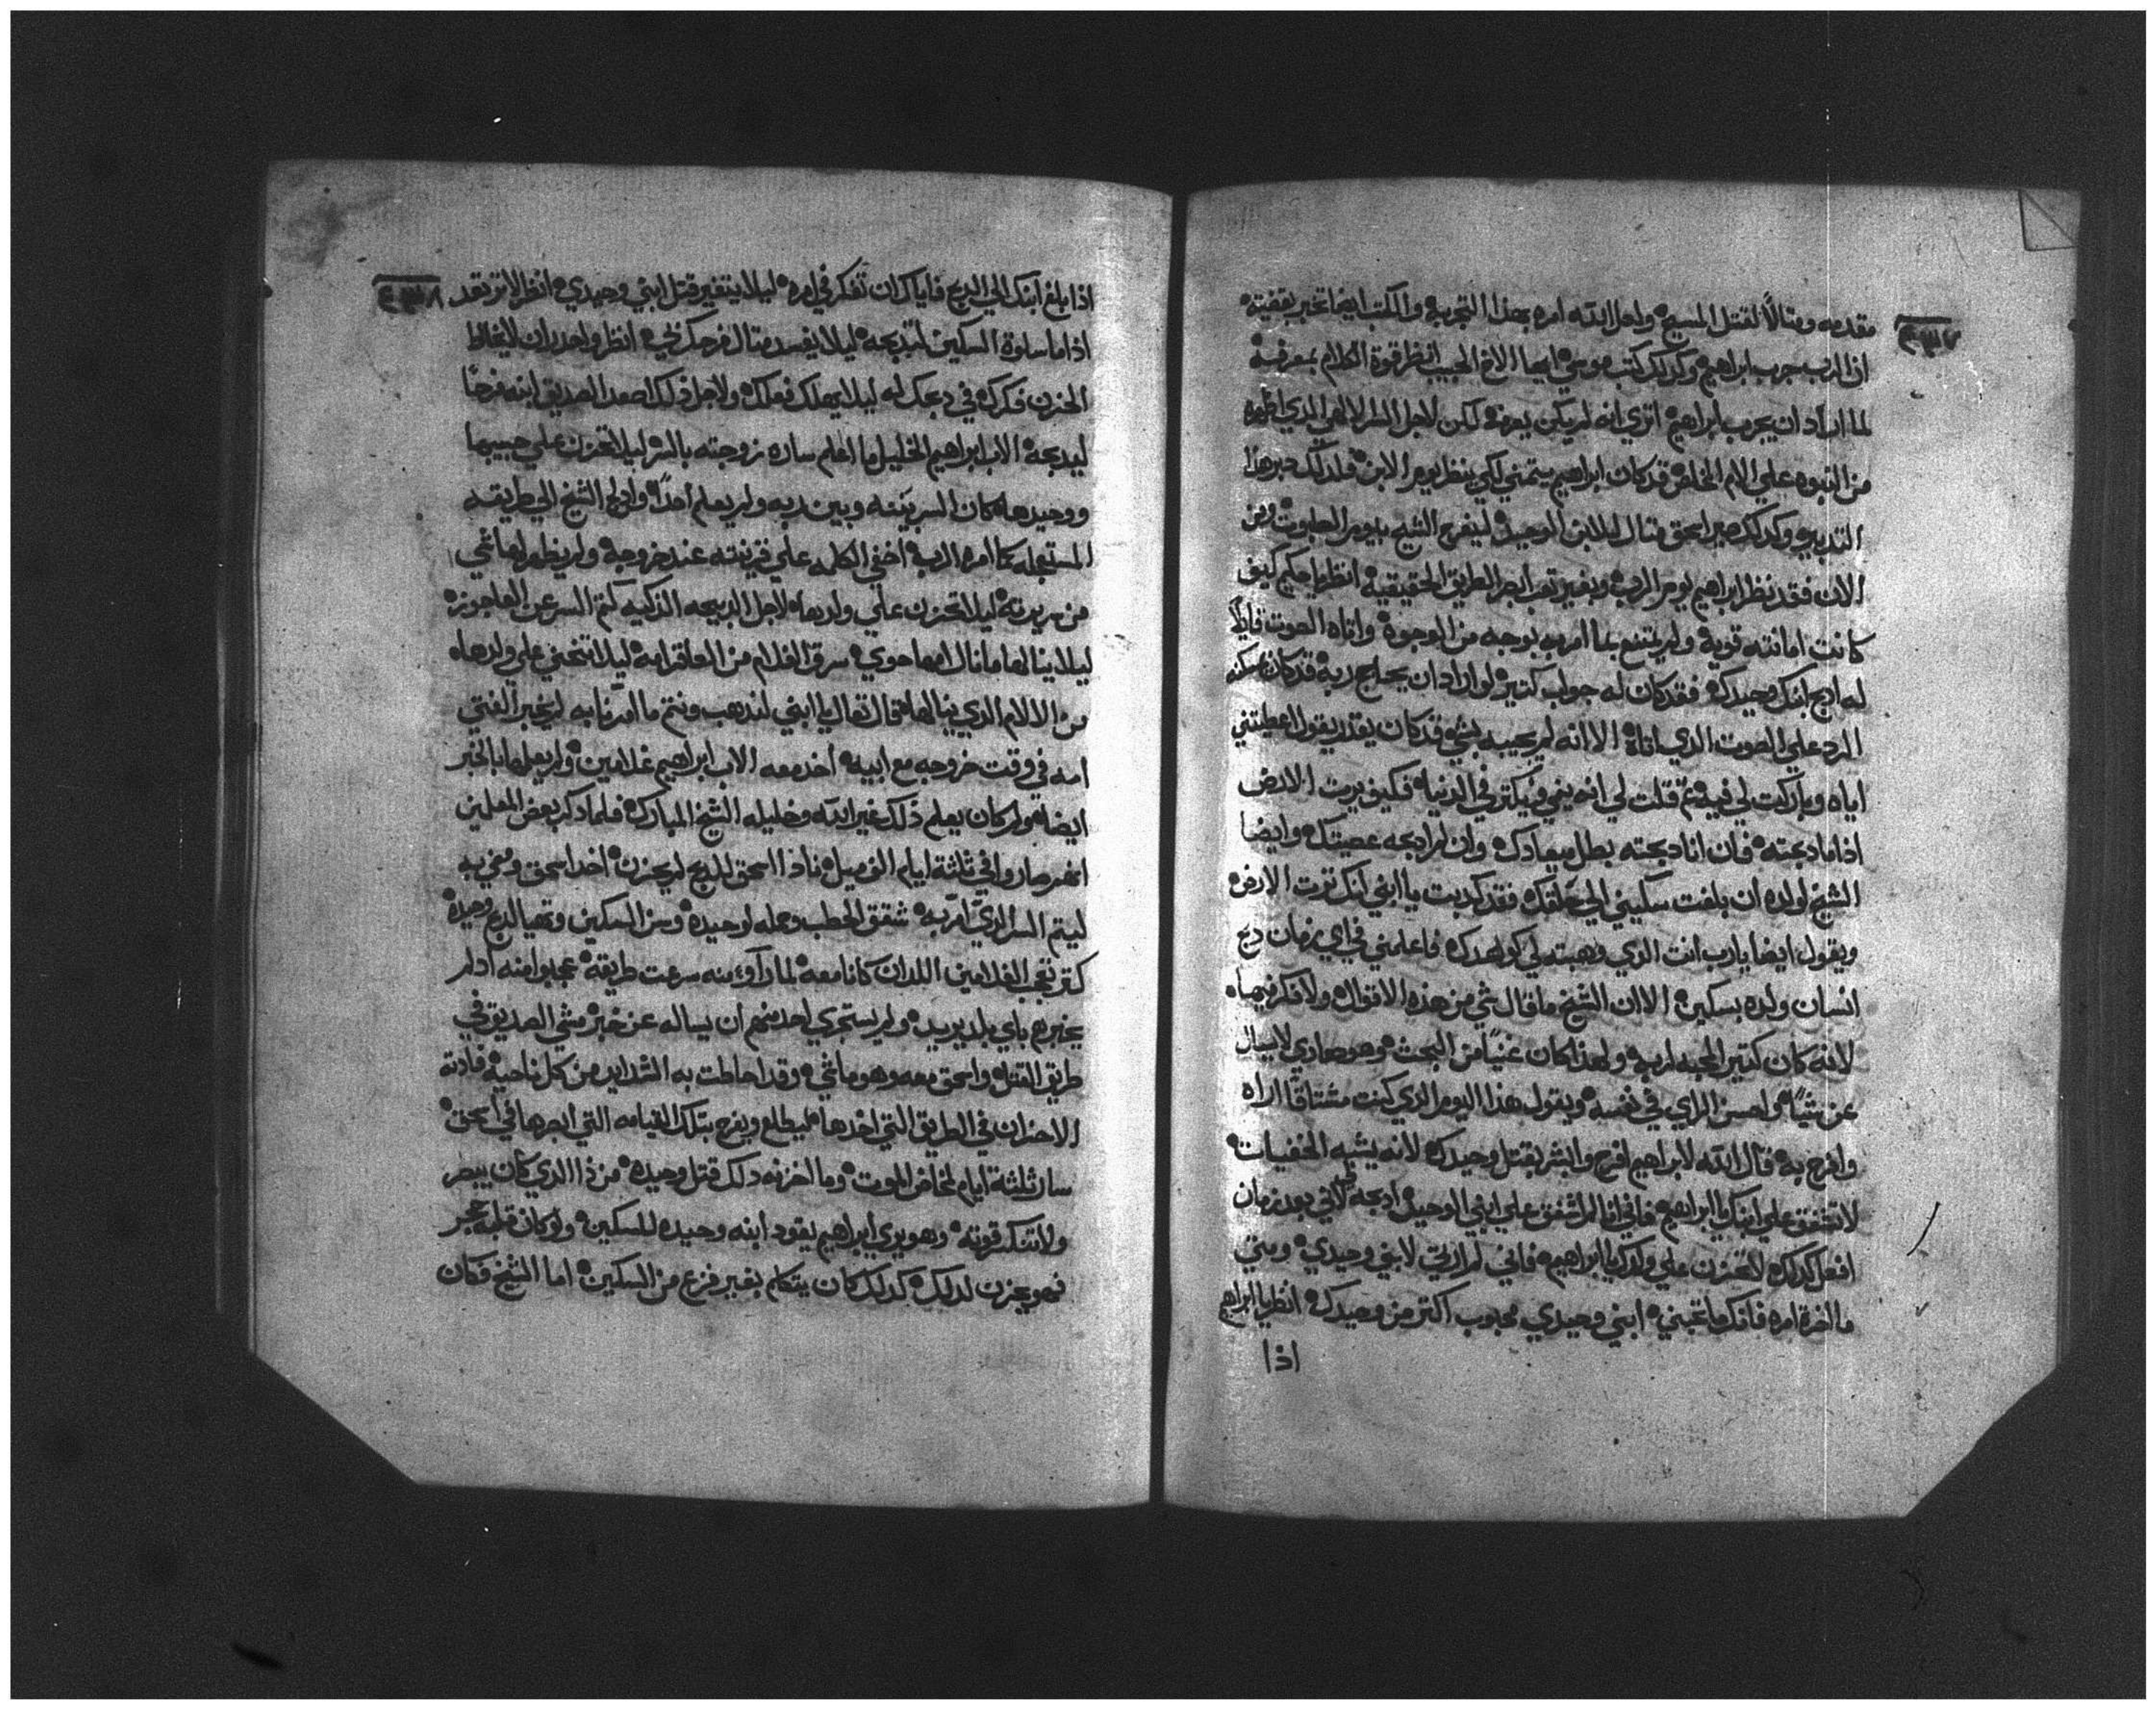 مقدمه ومثالًا لقتل المسيح ولعل الله امره بهذا التجربه والكتب ايضا تخبر بقضيته
ان الرب جرب ابراهيم وكدلك كتب موسي ايها الاخ الحبيب انظر قوة الكلام بمعرفة
لما اراد ان يجرب ابراهيم اتري انه لم يكن يعرفه لكن لاجل السر الالهي الدي اظهره
من النبوه علي الام الخلاص قد كان ابراهيم يتمني لكي ينظر يوم الابن فلدلك دبر هدا
التدبير وكدلك صير اسحق مثال للابن الوحيد ليفرح الشيخ بيوم الصلبوت ومن
الان فقد نظر ابراهيم يوم الرب وبغير تعب ابصر الطريق الحقيقية انظر يا حكيم كيف
كانت امانته قوية ولم يمتنع بما امر به بوجه من الوجوة واتاه الصوت قايلًا
له ادبح ابنك وحيدك فقد كان له جواب كتير لو اراد ان يحاجج ربه قد كان يمكنه
الرد علي الصوت الدي اتاة الا انه لم يجيبه بشي قد كان يقدر يقول اعطيتني
اياه وباركت لي فيه تم قلت لي انه ينمي ويكتر في الدنيا فكيف يرت الارض
اذا ما دبحته فان انا دبحته بطل ميعادك وان لم ادبحه عصيتك وايضا
الشيخ لولده ان بلغت سكيني الي حلقك فقد كدبت يا ابني انك ترت الارض
ويقول ايضا يارب انت الدي وهبته لي كوعدك فاعلمني في اي زمان دبح
انسان ولده بسكين الا ان الشيخ ما قال شي من هذه الاقوال ولا فكر فيها
لانه كان كتير المحبه لربه ولهدا كان غنيًا من البحت وهو هاري لا يسال
عن شيًا ولحسن الراي في نفسه ويقول هدا اليوم الذي كنت مشتاقًا اراه
وافرح به قال الله لابراهيم افرح وابشر بقتل وحيدك لانه يشبه الخفيات
لا تشفق علي ابنك يا ابراهيم فاني انا لم اشفق علي ابني الوحيد ادبحه لاني بعد زمان
افعل كدلك لا تحزن علي ولدك يا ابراهيم فاني لم ارتي لابني وحيدي ومتي
ما اخرة امره فانك ما تحبني ابني وحيدي محبوب اكتر من وحيدك انظر يا ابراهيم
اذا
اذا بلغ ابنك الي الدبح فاياك ان تفكر في امره ليلا يتغير قتل ابني وحيدي انظر لا ترتعد
اذا ما سلوة السكين لتدبحه ليلا يفسد متال فرحك لي انظر واحدر ان لا يخالط
الحزن فكرك في دبحك له ليلا يهلك فعلك ولاجل دلك اصعد الصديق ابنه فرحًا
ليدبحه الاب ابراهيم الخليل ما اعلم ساره زوجته بالسر ليلا تحزن علي حبيبها
ووحيدها كان السر بينه وبين ربه ولم يعلم احدًا وادلج الشيخ الي طريقه
المستعجله كما امره الرب اخفي الكلمه علي قرينته عند خروجة ولم يظهر لها شي
من سريرته ليلا تحزن علي ولدها لاجل الدبيحه الزكيه كتم السر عن العاجوزه
ليلا ينالها ما نال امها حوي سرق الغلام من العاقر امه ليلا تنحني علي ولدها
من الالام الدي ينالها قال تعال يا ابني لندهب ونتم ما امرنا به لم يخبر الفتي
امه في وقت خروجه مع ابيه اخد معه الاب ابراهيم غلامين ولم يعلمها بالخبر
ايضا ولم كان يعلم ذلك غير الله وخليله الشيخ المبارك فلما دكر بعض المعلمين
انهم صاروا في ثلثة ايام الف ميل فاذا اسحق للدبح لم يحزن اخد اسحق ومضي به
ليتم السر الدي امر به شقق الحطب وحمله لوحيده وسن السكين وتهيا لدبح وحيده
كتر تعجب الغلامين اللدان كانا معه لما رآوء منه سرعت طريقه عجبوا منه اد لم
يخبرهم باي بلد يريد ولم يستجري احد منهم ان يساله عن خبره مشي الصديق في
طريق القتل واسحق معه وهو ماشي وقد احاطت به الشدايد من كل ناحية قادته
الاحزان في الطريق التي اخدها ليطلع ويفرح بتلك القيامه التي ابصرها في اسحق
سار ثلثة ايام لمخاض الموت وما احزنه دلك قتل وحيده من ذا الدي كان يبصر
ولا تنكسر قوته وهو يري ابراهيم يقود ابنه وحيده للسكين ولو كان قلبه حجر
فهو يحزن لدلك كدلك كان يتكلم بغير فزع من السكين اما الشيخ فكان